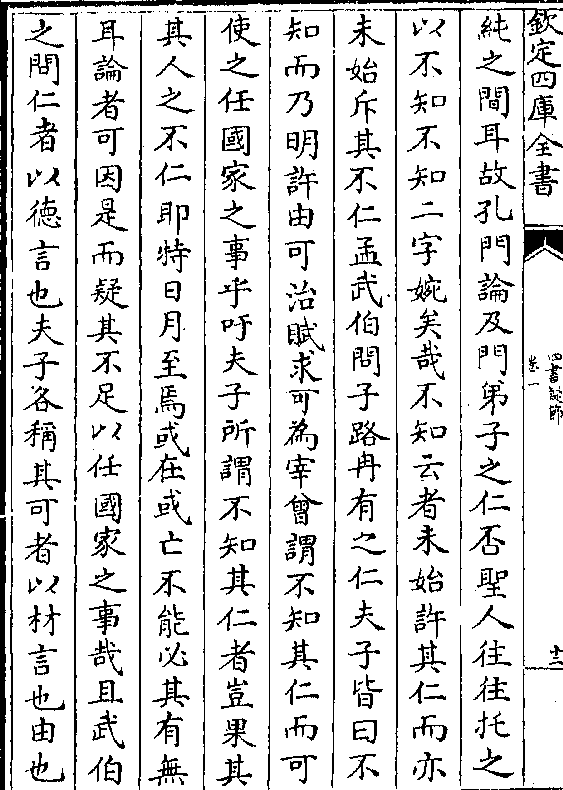 欽定四庫全書
四書說節
卷一
十三
純之間耳故孔門論及門弟子之仁否聖人往往托之
以不知不知二字婉矣哉不知云者未始許其仁而亦
未始斥其不仁孟武伯問子路冉有之仁夫子皆曰不
知而乃明許由可治賦求可為宰曾謂不知其仁而可
使之任國家之事乎吁夫子所謂不知其仁者豈果其
其人之不仁耶特日月至焉或在或亡不能必其有無
耳論者可因是而疑其不足以任國家之事哉且武伯
之問仁者以德言也夫子各稱其可者以材言也由也